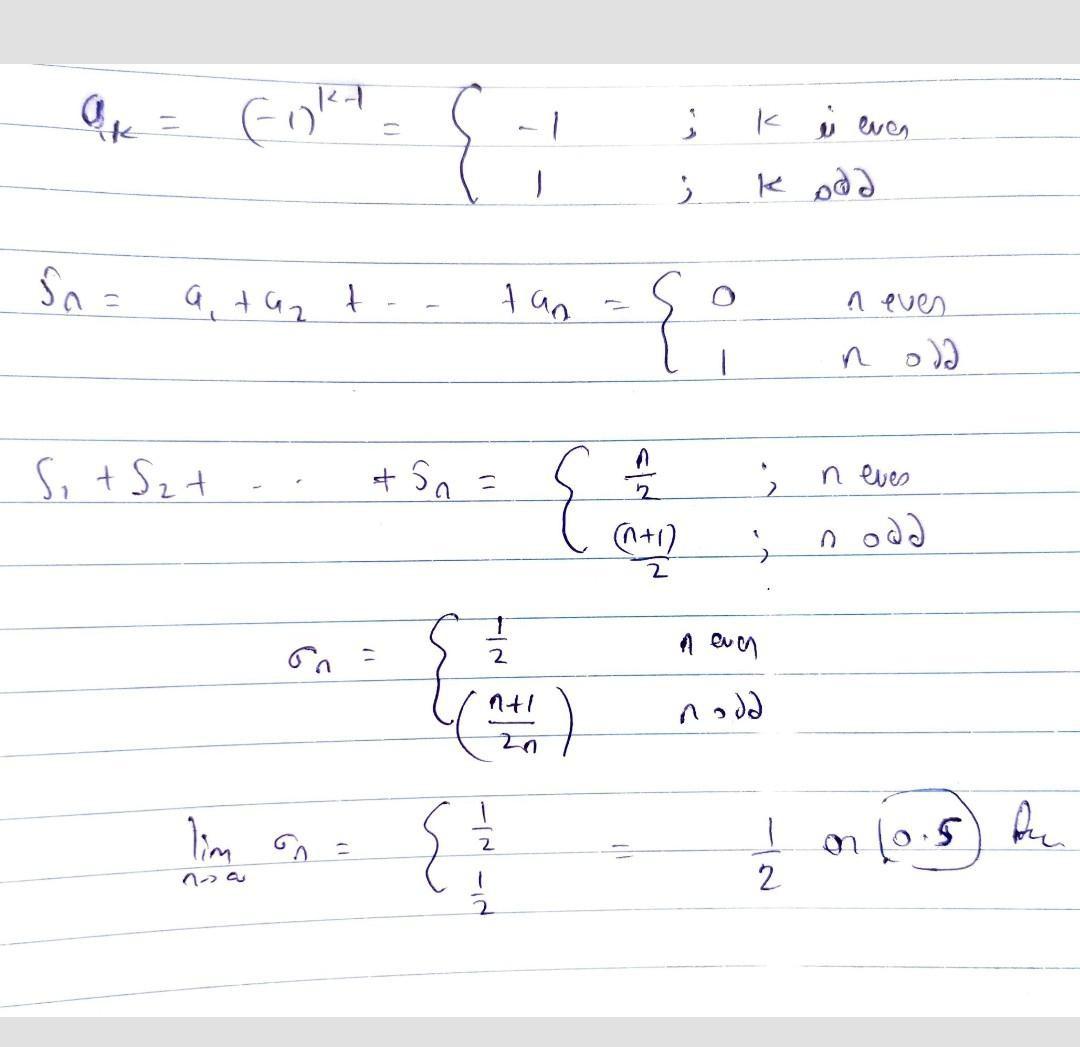 a_k = (-1)^{k-1} = { -1 ; k is even
1 ; k odd
S_n = a_1 + a_2 + - - + a_n = { 0 n even
1 n odd
S_1 + S_2 + - - + S_n = { n/2 ; n even
(n+1)/2 ; n odd
σ_n = { 1/2 n even
((n+1)/2n) n odd
lim_{n→∞} σ_n = { 1/2 = 1/2 or 0.5
1/2